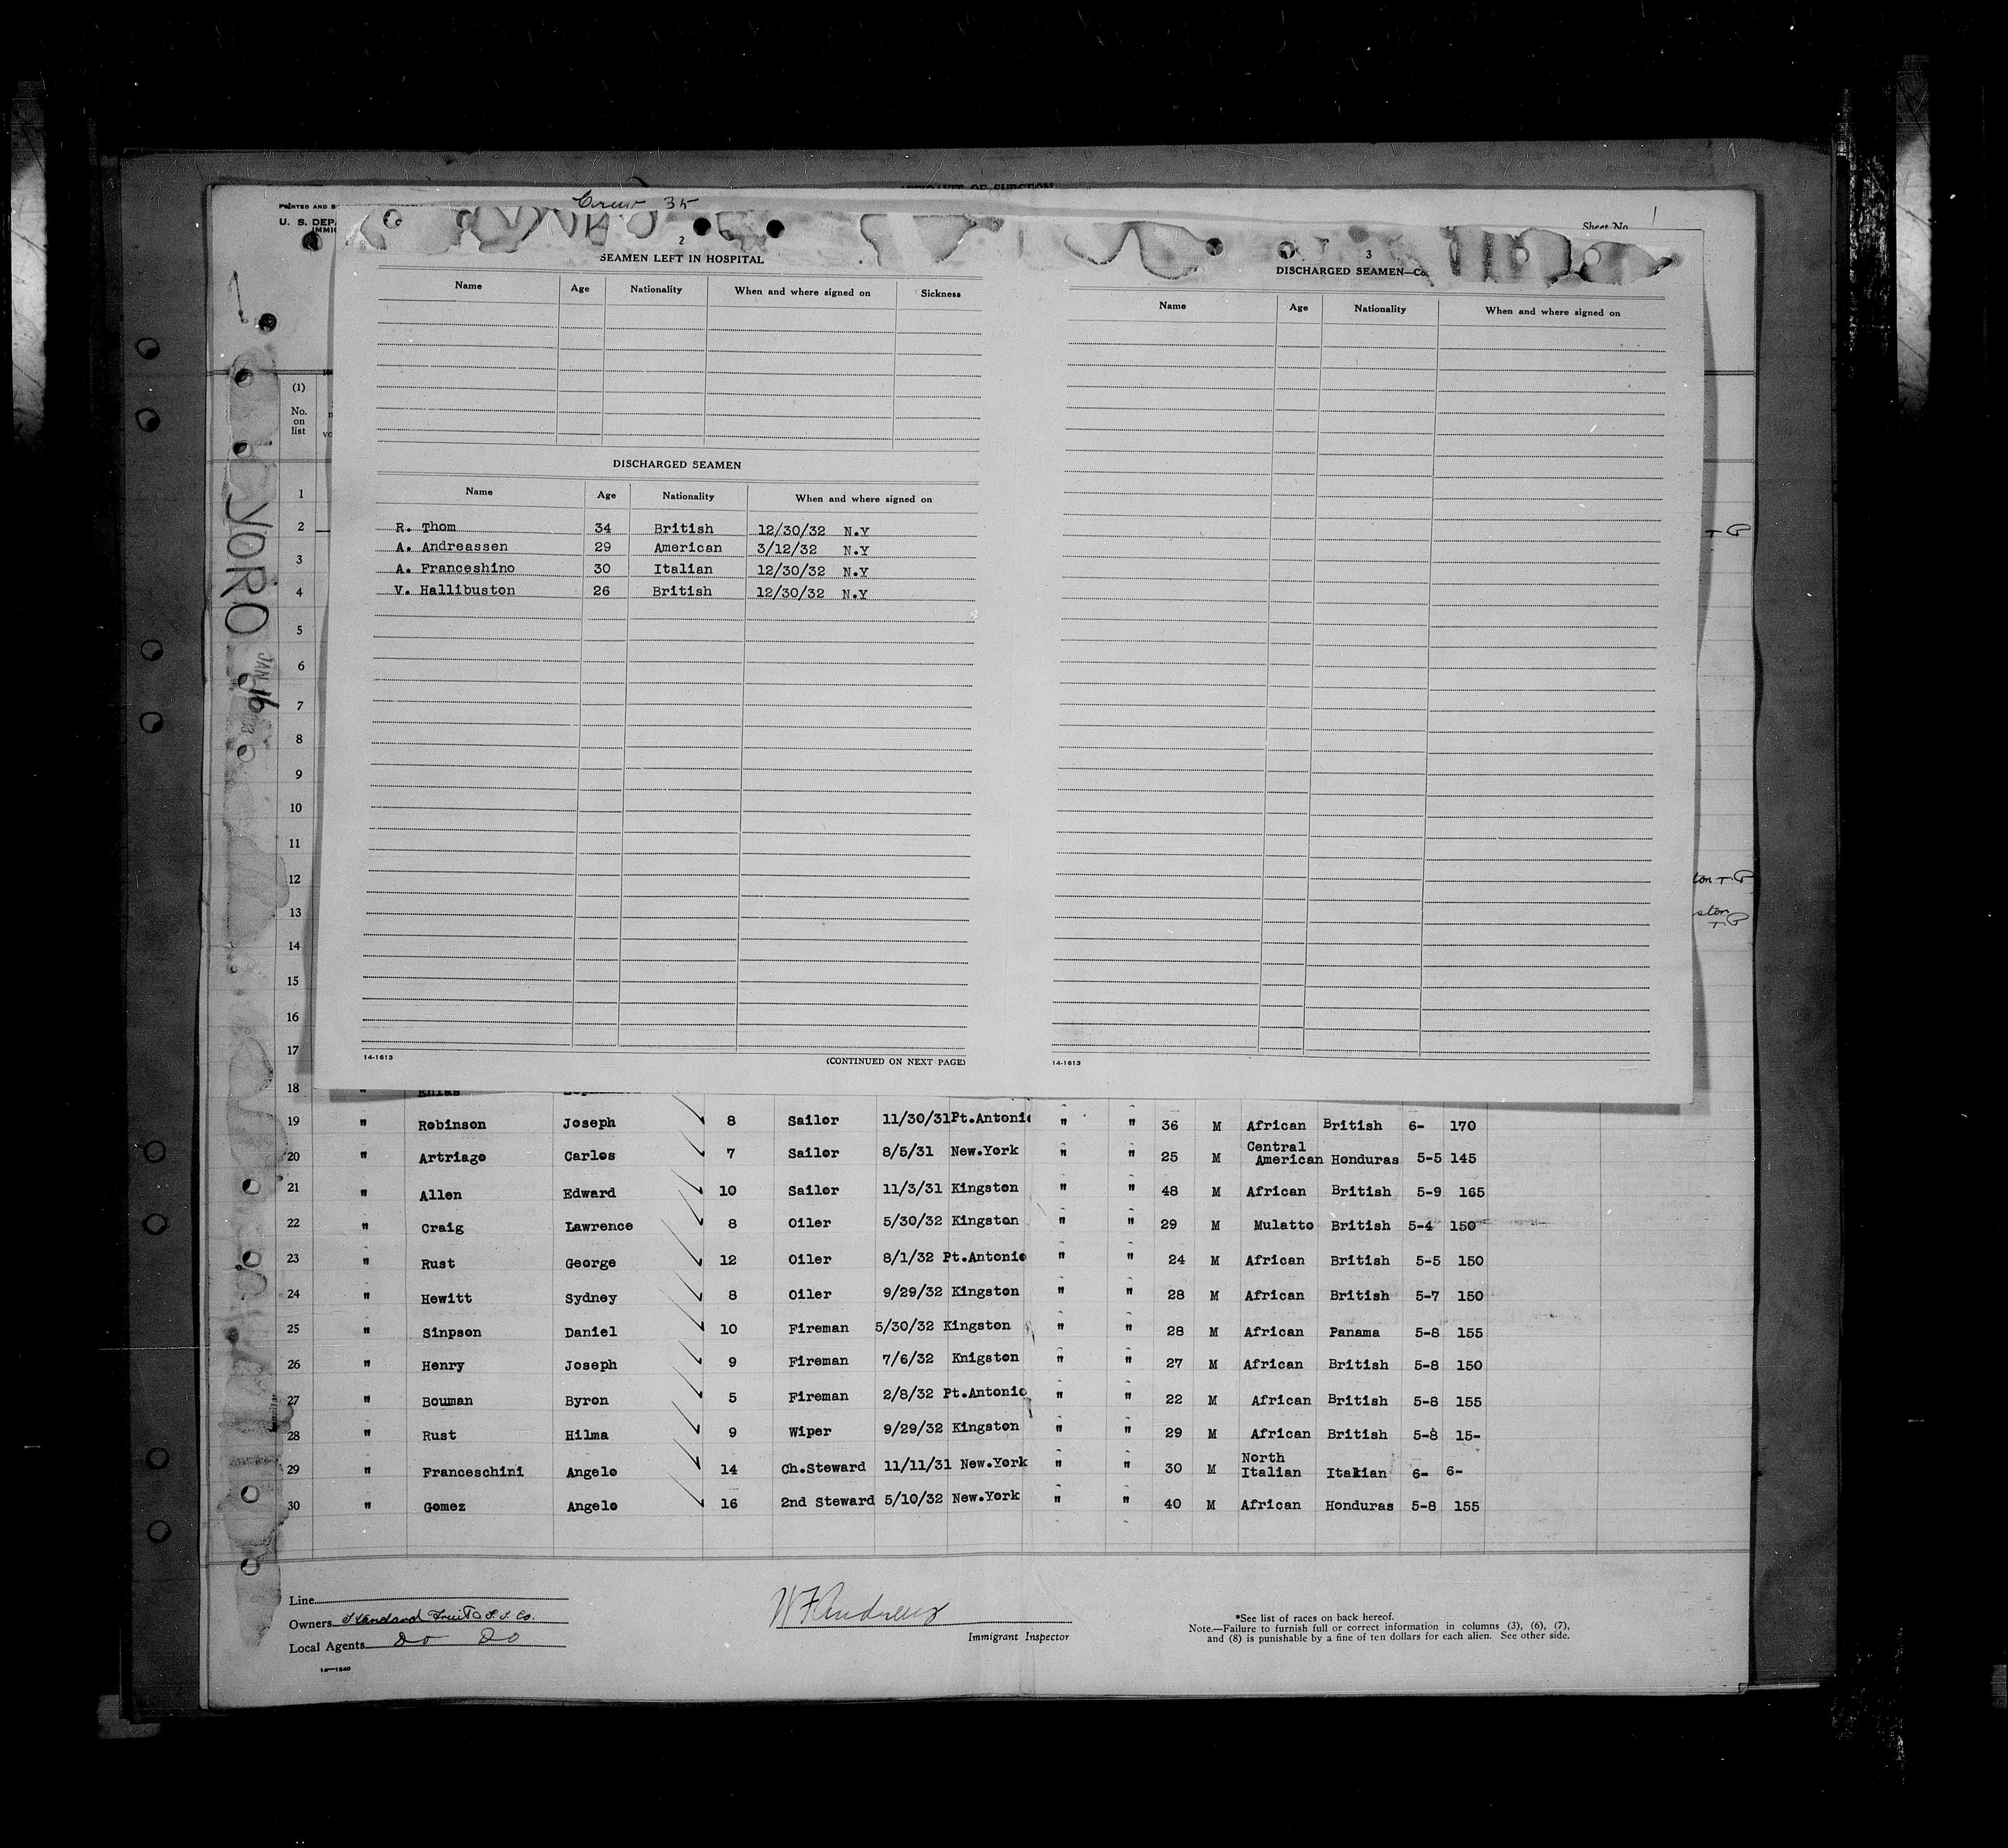 Crew 35
PRINTED AND
U. S. DEPA
IMMIG
Sheet No. 1
YORO
JAN 16
(1)
No.
on
list
2
SEAMEN LEFT IN HOSPITAL
Name Age Nationality When and where signed on Sickness
DISCHARGED SEAMEN
Name Age Nationality When and where signed on
R. Thom 34 British 12/30/32 N.Y
A. Andreassen 29 American 3/12/32 N.Y
A. Franceshino 30 Italian 12/30/32 N.Y
V. Hallibuston 26 British 12/30/32 N.Y
14-1613 (CONTINUED ON NEXT PAGE)
3
DISCHARGED SEAMEN—Co
Name Age Nationality When and where signed on
14-1613
1
2
3
4
5
6
7
8
9
10
11
12
13
14
15
16
17
18
19 " Robinson Joseph 8 Sailor 11/30/31 Pt.Antonio " " 36 M African British 6- 170
20 " Artriago Carlos 7 Sailor 8/5/31 New.York " " 25 M Central American Honduras 5-5 145
21 " Allen Edward 10 Sailor 11/3/31 Kingston " " 48 M African British 5-9 165
22 " Craig Lawrence 8 Oiler 5/30/32 Kingston " " 29 M Mulatto British 5-4 150
23 " Rust George 12 Oiler 8/1/32 Pt.Antonio " " 24 M African British 5-5 150
24 " Hewitt Sydney 8 Oiler 9/29/32 Kingston " " 28 M African British 5-7 150
25 " Sinpson Daniel 10 Fireman 5/30/32 Kingston " " 28 M African Panama 5-8 155
26 " Henry Joseph 9 Fireman 7/6/32 Knigston " " 27 M African British 5-8 150
27 " Bouman Byron 5 Fireman 2/8/32 Pt.Antonio " " 22 M African British 5-8 155
28 " Rust Hilma 9 Wiper 9/29/32 Kingston " " 29 M African British 5-8 15-
29 " Franceschini Angelo 14 Ch.Steward 11/11/31 New.York " " 30 M North Italian Itakian 6- 6-
30 " Gomez Angelo 16 2nd Steward 5/10/32 New.York " " 40 M African Honduras 5-8 155
Line
Owners Standard Fruit & S. S. Co.
Local Agents Do Do
14-1240
W F Andrews
Immigrant Inspector
*See list of races on back hereof.
Note.—Failure to furnish full or correct information in columns (3), (6), (7),
and (8) is punishable by a fine of ten dollars for each alien. See other side.